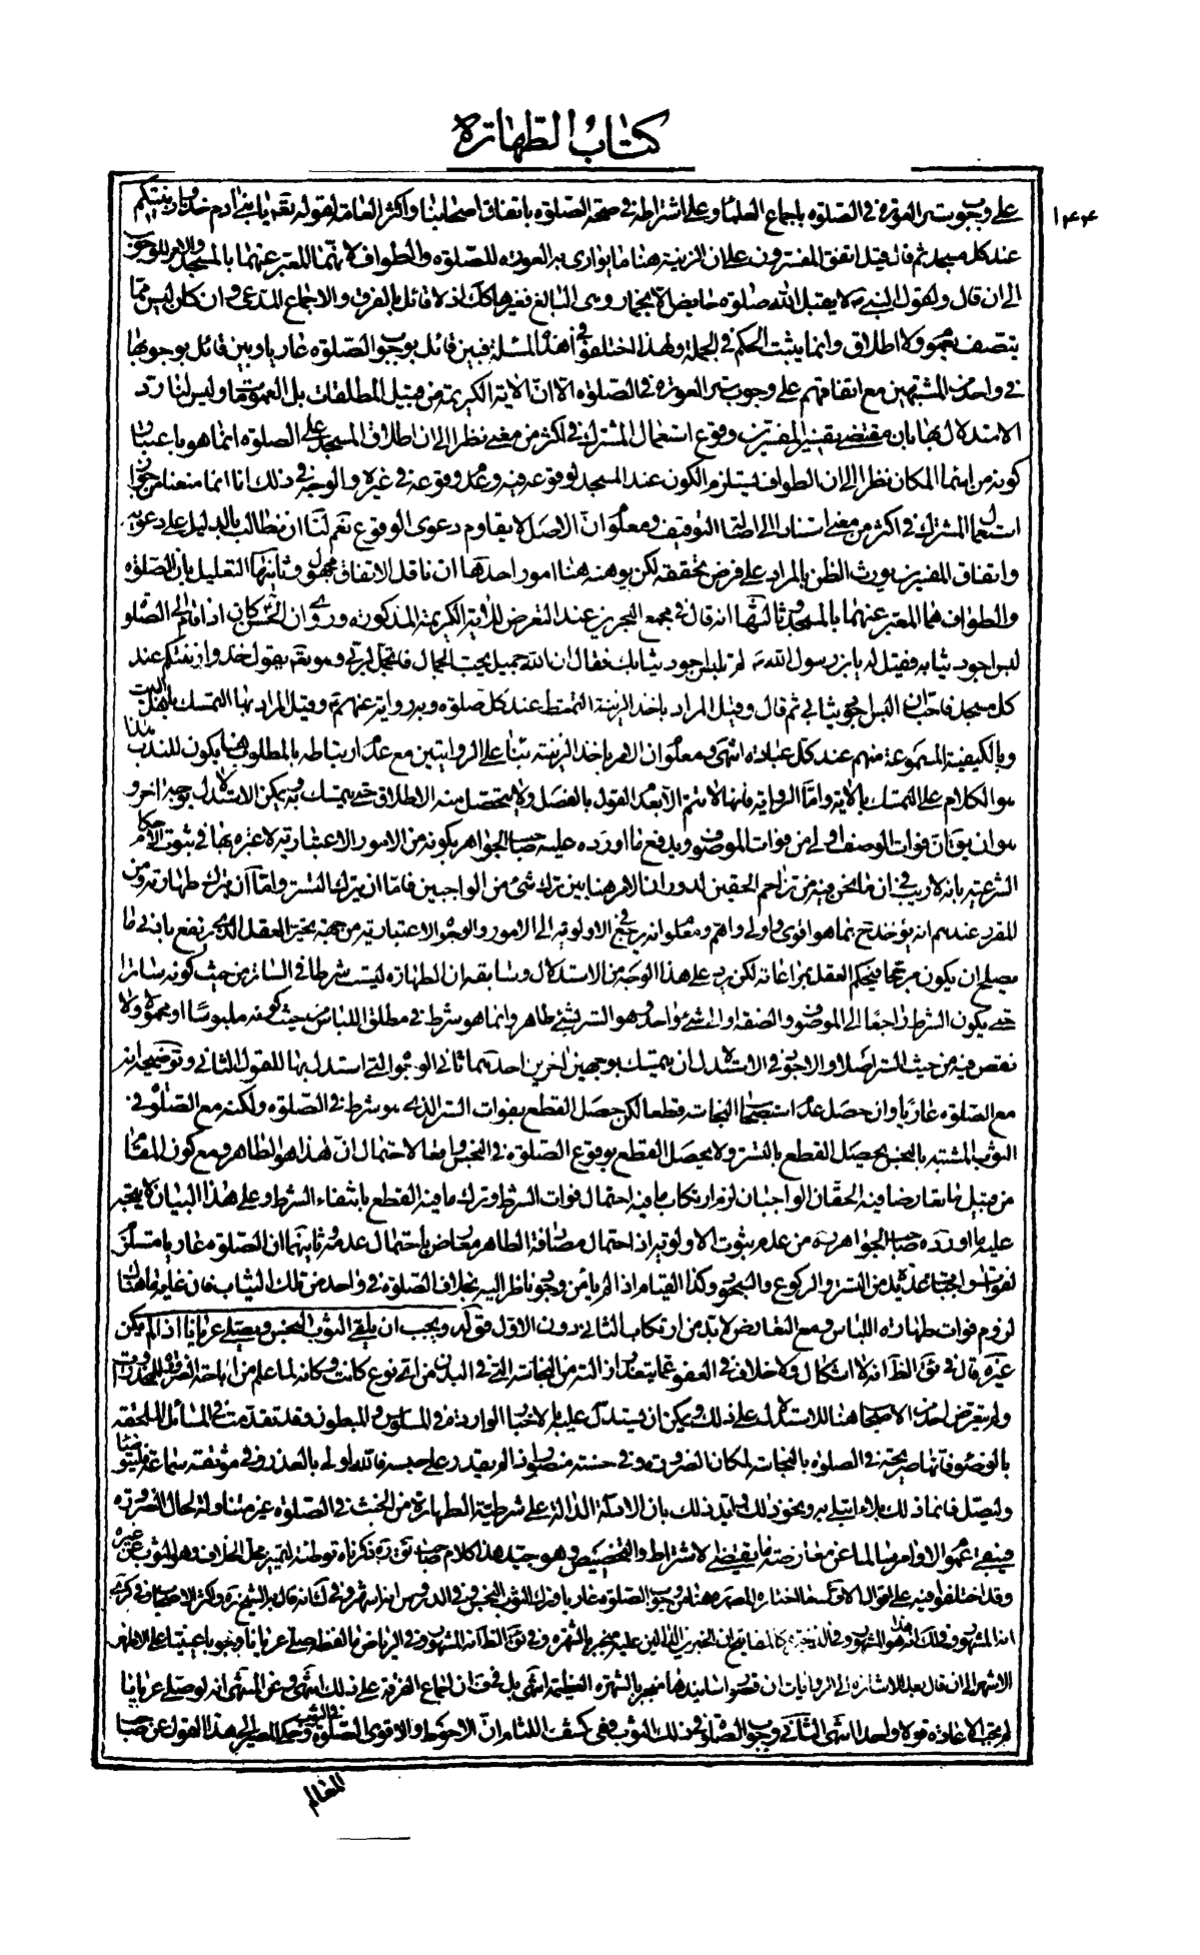 كتاب الطهارة
١٤٤
على وجوب ستر العورة في الصلوة باجماع العلماء وعلى اشتراطه في صحة الصلوة باتفاق اصحابنا واكثر العامة لقوله تعه يا بني ادم خذوا زينتكم
عند كل مسجد ثم قال قيل اتفق المفسرون على ان الزينة هنا ما يوارى به العورة للصلوة والطواف لانهما المعبر عنهما بالمسجد والامر للوجوب
الى ان قال ولقول النبي ص لا يقبل الله صلوة حائض الا بخمار وهي البالغ فغيرها كك اذ لا قائل بالفرق والاجماع المدعى وان كان ليس مما
يتصف بعموم ولا اطلاق وانما يثبت الحكم في الجملة ولهذا اختلفوا في هذه المسئلة فبين قائل بوجوب الصلوة عاريا وبين قائل بوجوبها
في واحد من المشتبهين مع اتفاقهم على وجوب ستر العورة في الصلوة الا ان الاية الكريمة من قبيل المطلقات بل العمومات وليس لنا رد
الاستدلال بها بان مقتضى تفسير المفسرين وقوع استعمال المشترك في اكثر من معنى نظرا الى ان اطلاق المسجد على الصلوة انما هو باعتبار
كونه من اسماء المكان نظرا الى ان الطواف يستلزم الكون عند المسجد لوقوعه فيه وعدم وقوعه في غيره والوجه في ذلك انا انما منعنا من جواز
استعمال المشترك في اكثر من معنى استنادا الى اصالة التوقيف ومعلوم ان الاصل لا يقاوم دعوى الوقوع نعم لنا ان نطالب بالدليل على دعويه
واتفاق المفسرين يورث الظن بالمراد على فرض تحققه لكن يوهنه هنا امور احدها ان ناقل الاتفاق مجهول وثانيها التعليل بان الصلوة
والطواف هما المعبر عنهما بالمسجد وثالثها انه قال في مجمع البحرين عند التعرض للاية الكريمة المذكورة وروى ان الحسن كان اذا قام الى الصلوة
لبس اجود ثيابه فقيل له يا بن رسول الله ص لم تلبس اجود ثيابك فقال ان الله جميل يحب الجمال فاتجمل لربي وهو تعه يقول خذوا زينتكم عند
كل مسجد فاحب ان البس اجود ثيابي ثم قال وقيل المراد باخذ الزينة التمشط عند كل صلوة وبه رواية عنهم ع وقيل المراد بها التمسك باهل البيت
وبالكيفية المسموعة منهم عند كل عبادة انتهى ومعلوم ان الامر باخذ الزينة بناء على الروايتين مع عدم ارتباطه بالمطلوب هنا يكون للندب هذا
هو الكلام على التمسك بالاية واما الرواية فانها لا تتم الا بعد القول بالفصل ولا يتحصل منه الاطلاق حتى يتمسك به ويمكن الاستدلال بوجه اخر و
هو ان يق ان فوات الوصف اولى من فوات الموصوف ويدفع ما اورده عليه صاحب الجواهر بكونه من الامور الاعتبارية لا عبرة بها في ثبوت الاحكام
الشرعية بانه لا ريب في ان ما نحن فيه من تزاحم الحقين لدوران الامر هنا بين ترك شئ من الواجبين فاما ان يترك الستر واما ان يترك طهارته ومن
المقرر عندهم انه يؤخذ ح بما هو اقوى واولى واهم ومعلوم انه يرجع في الاولوية الى الامور والوجوه الاعتبارية من جهة تخيير العقل الذي يرتفع بادنى ما
يصلح ان يكون مرجحا فيحكم العقل بمراعاته لكن يرد على هذا الوجه من الاستدلال وسابقه ان الطهارة ليست شرطا في الساتر من حيث كونه ساترا
حتى يكون الشرط راجعا الى الموصوف والصفة او الى شئ واحد وهو الستر بشئ طاهر وانما هو شرط في مطلق اللباس من حيث كونه ملبوسا او محمولا ولا
نقص فيه من حيث الستر اصلا والاجود في الاستدلال ان يتمسك بوجهين اخرين احدهما ثاني الوجوه التي استدل بها للقول الثاني وتوضيحه انه
مع الصلوة عاريا وان حصل عدم استصحاب النجاسات قطعا لكن حصل القطع بفوات الستر الذي هو شرط في الصلوة ولكنه مع الصلوة في
الثوب المشتبه بالنجس يحصل القطع بالستر ولا يحصل القطع بوقوع الصلوة في النجس واقعا لاحتمال ان هذا هو الطاهر ومع كون المقام
من قبيل ما تعارضا فيه الحقان الواجبان لزم ارتكاب ما فيه احتمال فوات الشرط وترك ما فيه القطع بانتفاء الشرط وعلى هذا البيان لا يتجه
عليه ما اورده صاحب الجواهر ره من عدم ثبوت الاولوية اذ احتمال مصادفة الطاهر معارض باحتمال عدمه ثانيهما ان الصلوة عاريا مستلزم
لفوات واجبات عديدة من الستر والركوع والسجود وكذا القيام اذا لم يأمن وجود ناظر اليه بخلاف الصلوة في واحد من تلك الثياب فان غاية ما هناك
لزوم فوات طهارة اللباس ومع التعارض لا بد من ارتكاب الثاني دون الاول قوله ويجب ان يلقي الثوب النجس ويصلى عريانا اذا لم يكن
غيره قال في ئق الظ انه لا اشكال ولا خلاف في العفو عما يتعذر ازالته من النجاسة التي في البدن من اي نوع كانت وكانه لما علم من اباحة الضرورة للمحذورات
ولم يتعرض احد من الاصحاب هنا للاستدلال على ذلك ويمكن ان يستدل عليه بالاخبار الواردة في المسلوس والمبطون وقد تقدمت في المسائل الملحقة
بالوضوء فانها صريحة في الصلوة بالنجاسة لمكان الضرورة وفي حسنة منصور اذا لم يقدر على حبسه فالله اولى بالعذر وفي موثقة سماعة فليتوضأ
وليصل فانما ذلك بلاء ابتلي به ونحو ذلك ويايد ذلك بان الادلة الدالة على شرطية الطهارة من الخبث في الصلوة غير متناولة لحال الضرورة
فيبقى عموم الاوامر سالما عن معارضة ما يقتضي الاشتراط والتخصيص وهو جيد هذا كلام صاحب ئق ره ذكرناه توطئة لتميز محل الخلاف هو الثوب عن غيره
وقد اختلفوا فيه على اقوال الاول ما اختاره المصره هنا من وجوب الصلوة عاريا وترك الثوب النجس وفي الدروس انه اشهر وفي ك انه قال به الشيخ ره واكثر الاصحاب وفي كرى
انه المشهور وفي لك انه هو المشهور وفي الذخيرة كالمفاتيح ان الخبرين الدالين عليه منجبر بالشهرة وفي ئق الظ انه المشهور وفي الرياض ما لفظه صلى عريانا وجوبا عينيا على الاظهر
الاشهر الى ان قال بعد الاشارة الى الروايات ان قصور اسانيدها منجبر بالشهرة العظيمة انتهى بل في ف ان اجماع الفرقة على ذلك انتهى وعن المنتهى انه لو صلى عريانا
لم يجب الاعادة قولا واحدا انتهى الثاني وجوب الصلوة في ذلك الثوب ففي كشف اللثام ان الاحوط والاقوى الصلوة في الثوب وحكى المصير الى هذا القول عن صاحب
المعالم